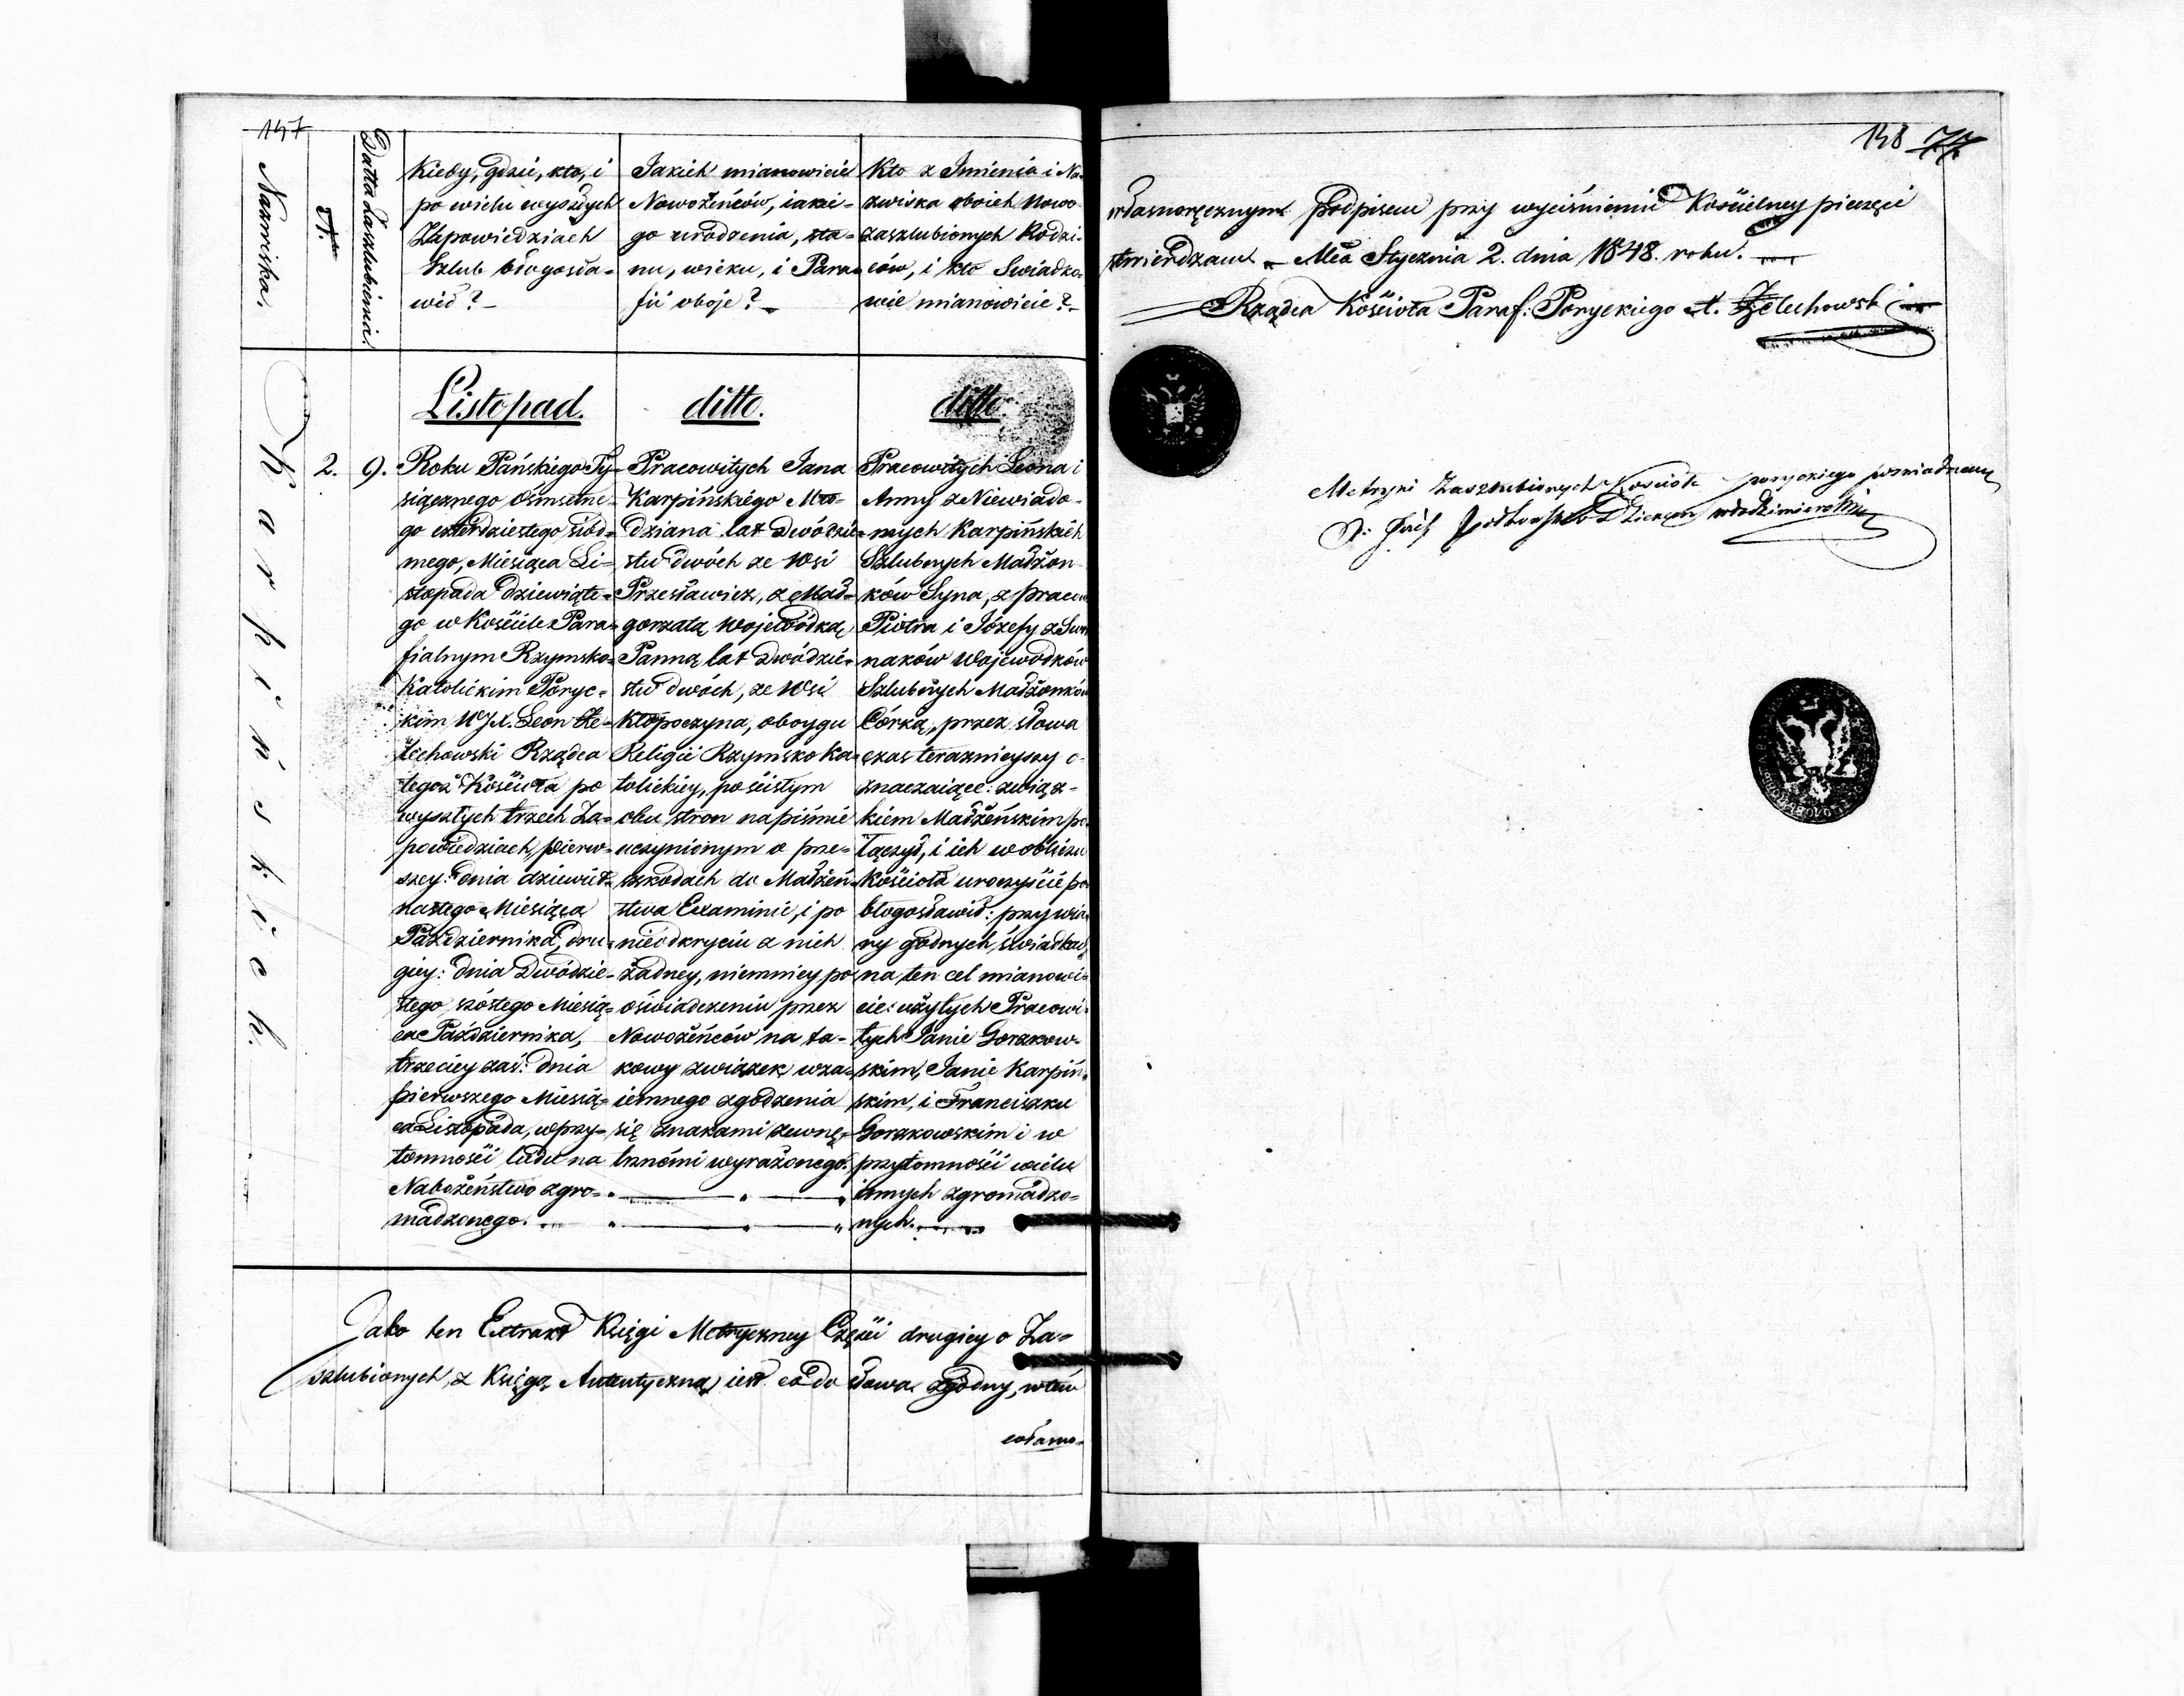 147
Nazwiska.
N.
Datta Zaszlubienia.
Kiedy, gdzie, kto, i
po wielu wyszłych
Zapowiedziach
Szlub błogosła-
wił?
Jakich mianowicie
Nowożeńców, jakie-
go urodzenia, sta-
nu, wieku, i Para-
fii oboje?
Kto z Imienia i Na-
zwiska oboich Nowo
zaszlubionych Rodzi-
ców, i kto Swiadko-
wie mianowicie?
Listopad.
ditto.
ditto.
Karpińskich.
2.
9.
Roku Pańskiego Ty-
siącznego Ośmsetne-
go czterdziestego siód-
mego, Miesiąca Li-
stopada dziewiąte-
go w Kościele Para-
fialnym Rzymsko-
Katolickim Poryc-
kim WJX. Leon Że-
lechowski Rządca
tegoż Kościoła po
wyszłych trzech Za-
powiedziach, pierw-
szey: dnia dziewięt-
nastego Miesiąca
Października, dru-
giey: dnia Dwódzie-
stego szóstego Miesią-
ca Października,
trzeciey zaś: dnia
pierwszego Miesią-
ca Listopada, w przy-
tomności ludu na
Nabożeństwo zgro-
madzonego.
Pracowitych Jana
Karpińskiego Mło-
dziana lat Dwódzie-
stu dwóch ze Wsi
Przesławicz, z Mał-
gorzatą Wojewódką
Panną lat Dwódzie-
stu dwóch, ze Wsi
Kłopoczyna, oboygu
Religii Rzymsko Ka-
tolickiey, po ścistym
obu stron na piśmie
uczynionym o prze-
szkodach do Małżeń-
stwa Examinie, i po
nieodkryciu z nich
żadney, niemniey po
oświadczeniu przez
Nowożeńców na ta-
kowy związek wza-
iemnego zgodzenia
się znakami zewnę-
trznémi wyrażonego.
Pracowitych Leona i
Anny z Niewiado-
mych Karpińskich
Szlubnych Małżon-
ków Syna, z praco
Piotra i Józefy z
naków Wojewodków
Szlubnych Małżonków
Córką, przez słowa
czas teraznieyszy o-
znaczaiące: związ-
kiem Małżeńskim po-
łączył, i ich w obliczu
Kościoła uroczyście po-
błogosławił: przy wia-
ry godnych, świadkach
na ten cel mianowi-
cie: użytych Pracowi-
tych Janie Gorzkow-
skim, Janie Karpiń-
skim, i Franciszku
Gorzkowskim i w
przytomności wielu
innych zgromadzo-
nych.
Jako ten Extrakt Księgi Metryczney Części drugiey o Za-
szlubionych, z Księgą Autentyczną iest co do słowa zgodny, w tem
własno-
148 77
własnoręcznym podpisem przy wyciśnieniu Kościelney pieczęci
stwierdzam Mca Stycznia 2. dnia 1848. roku.
Rządca Kościoła Paraf: Poryckiego X. Żelechowski
Metryki Zaszlubionych Kościoła poryckiego poswiadczam
X: Dziekan włodzimierski